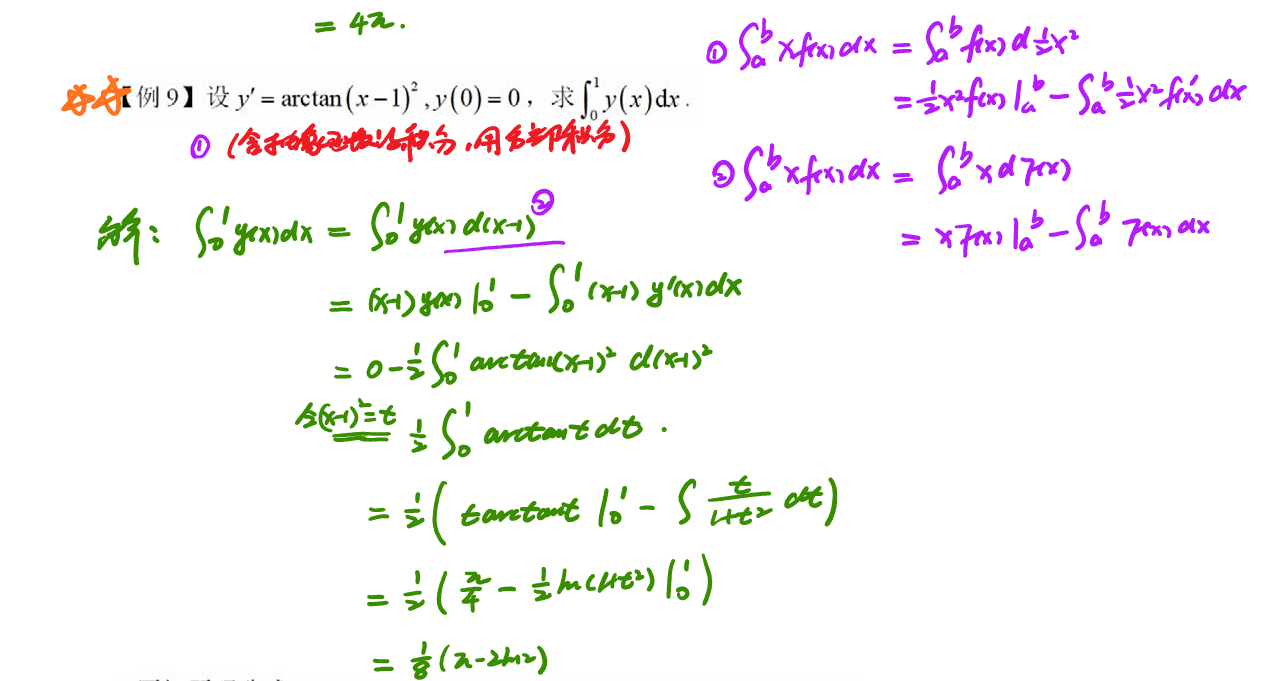 = 4π.
【例 9】设 y′ = arctan(x−1)², y(0) = 0，求 ∫₀¹ y(x)dx.
① (含有 积分,用分部积分)
解: ∫₀¹ y(x)dx = ∫₀¹ y(x) d(x-1) ②
= (x-1)y(x) |₀¹ - ∫₀¹ (x-1) y'(x)dx
= 0 - 1/2 ∫₀¹ arctan(x-1)² d(x-1)²
令(x-1)²=t 1/2 ∫₀¹ arctant dt.
= 1/2 ( t arctant |₀¹ - ∫ t/(1+t²) dt )
= 1/2 ( π/4 - 1/2 ln(1+t²) |₀¹ )
= 1/8 (π-2ln2)
① ∫ₐᵇ x f(x) dx = ∫ₐᵇ f(x) d 1/2 x²
= 1/2 x² f(x) |ₐᵇ - ∫ₐᵇ 1/2 x² f'(x) dx
② ∫ₐᵇ x f(x) dx = ∫ₐᵇ x d F(x)
= x F(x) |ₐᵇ - ∫ₐᵇ F(x) dx